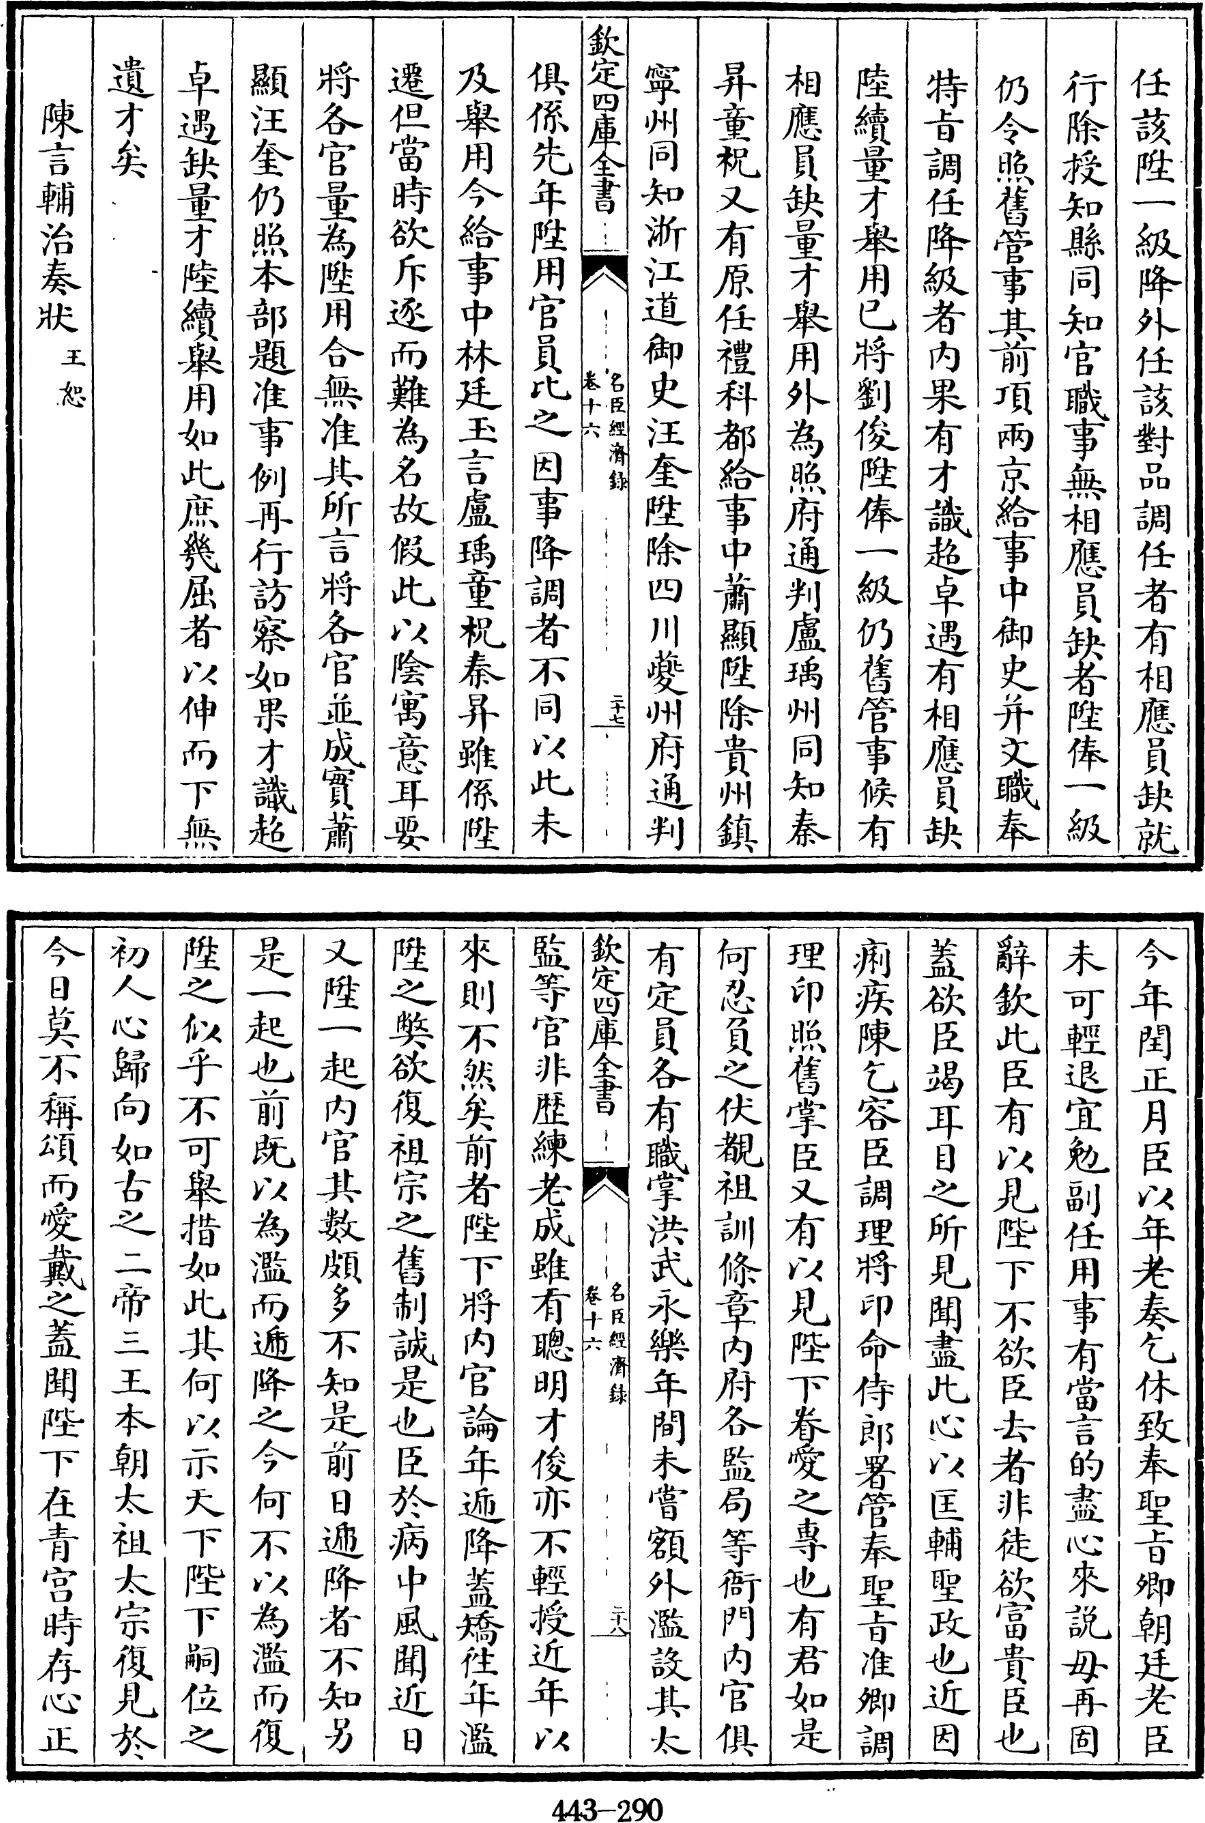 任該陞一級降外任該對品調任者有相應員缺就
行除授知縣同知官職事無相應員缺者陞俸一級
仍令照舊管事其前項兩京給事中御史并文職奉
特旨調任降級者内果有才識超卓遇有相應員缺
陸續量才舉用已將劉俊陞俸一級仍舊管事候有
相應員缺量才舉用外為照府通判盧瑀州同知秦
昇童柷又有原任禮科都給事中蕭顯陞除貴州鎮
寧州同知浙江道御史汪奎陞除四川夔州府通判
欽定四庫全書
名臣經濟錄
卷十六
二十七
俱係先年陞用官員比之因事降調者不同以此未
及舉用今給事中林廷玉言盧瑀童柷秦昇雖係陞
遷但當時欲斥逐而難為名故假此以陰寓意耳要
將各官量為陞用合無准其所言將各官並成實蕭
顯汪奎仍照本部題准事例再行訪察如果才識超
卓遇缺量才陸續舉用如此庶幾屈者以伸而下無
遺才矣
陳言輔治奏狀 王恕
今年閏正月臣以年老奏乞休致奉聖旨卿朝廷老臣
未可輕退宜勉副任用事有當言的盡心來説毋再固
辭欽此臣有以見陛下不欲臣去者非徒欲富貴臣也
蓋欲臣竭耳目之所見聞盡此心以匡輔聖政也近因
痢疾陳乞容臣調理將印命侍郎署管奉聖旨准卿調
理印照舊掌臣又有以見陛下眷愛之專也有君如是
何忍負之伏覩祖訓條章内府各監局等衙門内官俱
有定員各有職掌洪武永樂年間未嘗額外濫設其太
欽定四庫全書
名臣經濟錄
卷十六
二十八
監等官非歷練老成雖有聰明才俊亦不輕授近年以
來則不然矣前者陛下將内官論年逓降蓋矯徃年濫
陞之弊欲復祖宗之舊制誠是也臣於病中風聞近日
又陞一起内官其數頗多不知是前日逓降者不知另
是一起也前既以為濫而逓降之今何不以為濫而復
陞之似乎不可舉措如此其何以示天下陛下嗣位之
初人心歸向如古之二帝三王本朝太祖太宗復見於
今日莫不稱頌而愛戴之蓋聞陛下在青宫時存心正
443-290